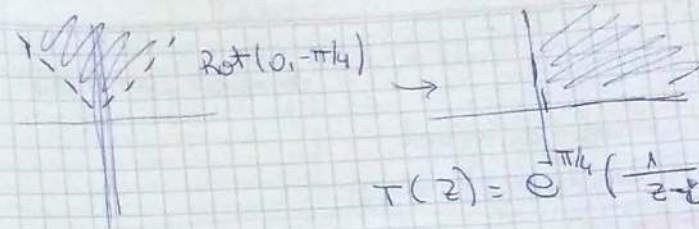 Rot(0,-π/4) →
T(z) = e^-π/4 (1/z-